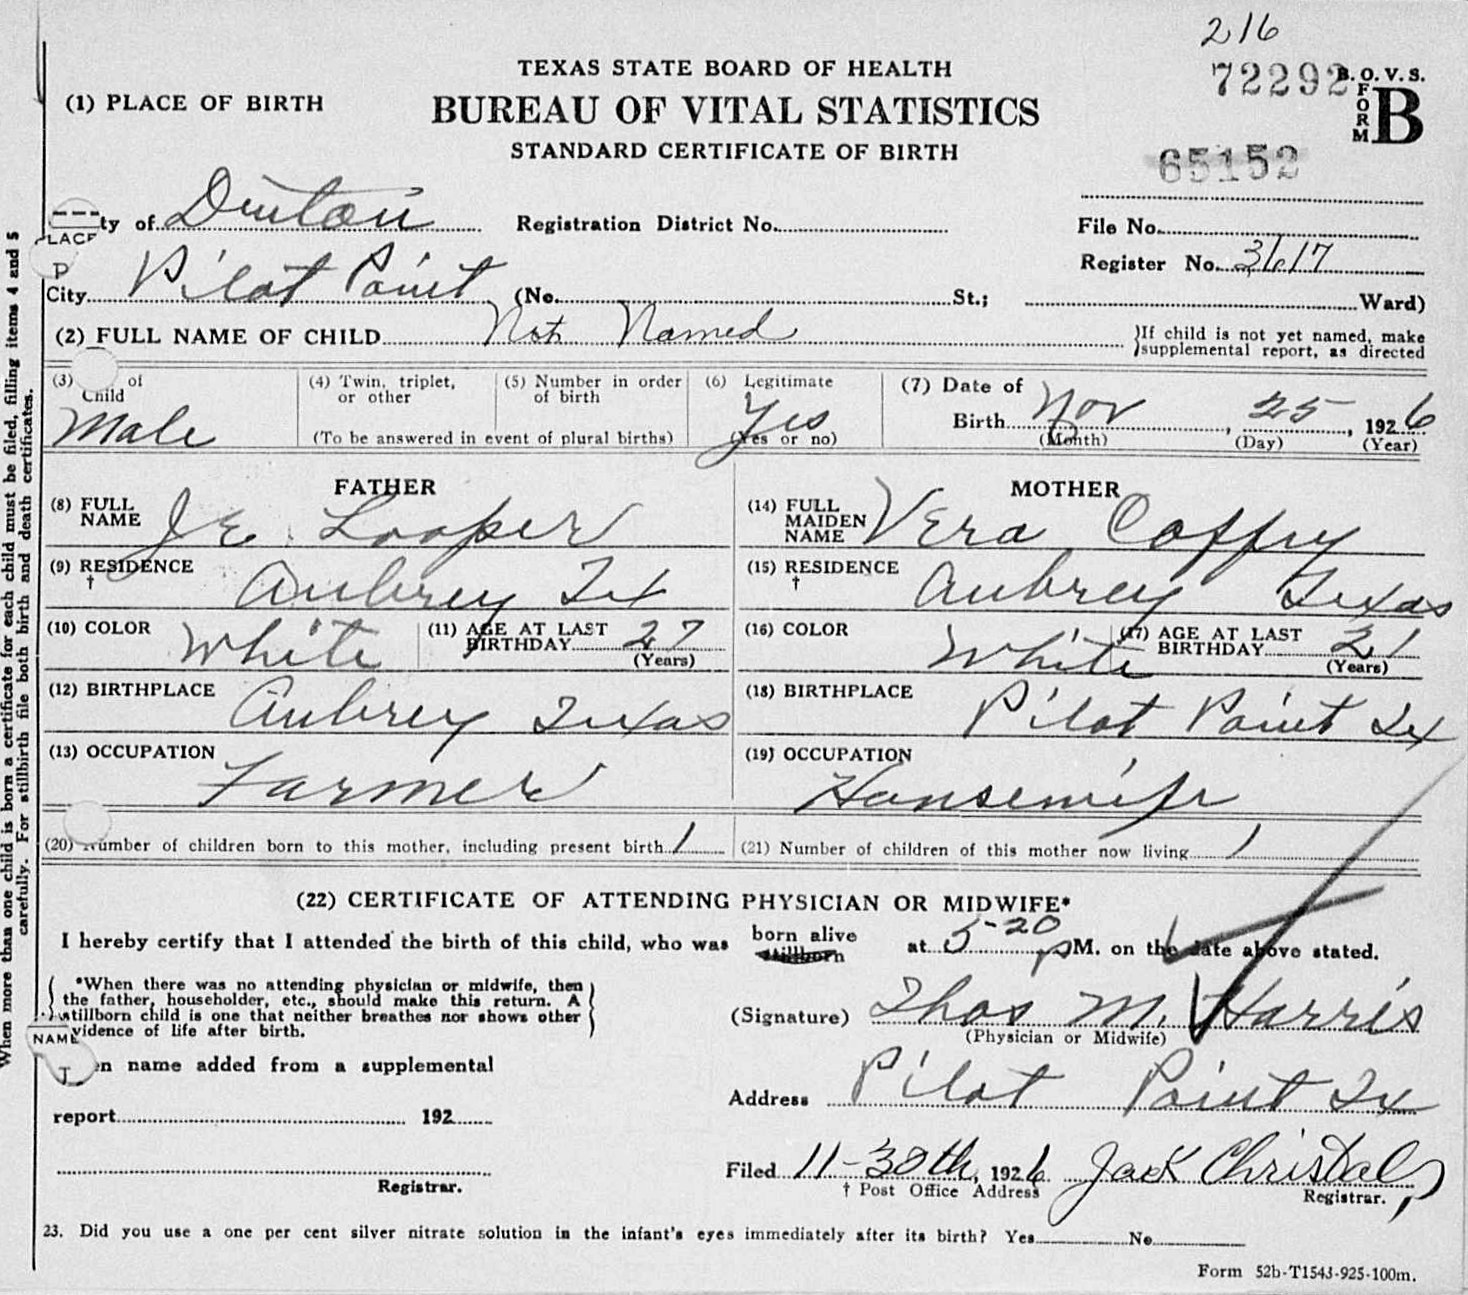 216
TEXAS STATE BOARD OF HEALTH
72292 B. O. V. S.
(1) PLACE OF BIRTH
BUREAU OF VITAL STATISTICS
FORM B
STANDARD CERTIFICATE OF BIRTH
65152
ty of Denton Registration District No.
File No.
PLACE
P
Register No. 3617
City Pilot Point (No. St.; Ward)
(2) FULL NAME OF CHILD Not Named }If child is not yet named, make
}supplemental report, as directed
(3) of Child Male
(4) Twin, triplet, or other
(5) Number in order of birth
(To be answered in event of plural births)
(6) Legitimate Yes (Yes or no)
(7) Date of Birth Nov (Month), 25 (Day), 1926 (Year)
FATHER
MOTHER
(8) FULL NAME J E Looper
(14) FULL MAIDEN NAME Vera Coffry
(9) RESIDENCE † Aubrey Tex
(15) RESIDENCE † Aubrey Texas
(10) COLOR White (11) AGE AT LAST BIRTHDAY 27 (Years)
(16) COLOR White (17) AGE AT LAST BIRTHDAY 21 (Years)
(12) BIRTHPLACE Aubrey Texas
(18) BIRTHPLACE Pilot Point Tex
(13) OCCUPATION Farmer
(19) OCCUPATION Housewife
(20) Number of children born to this mother, including present birth 1
(21) Number of children of this mother now living 1
(22) CERTIFICATE OF ATTENDING PHYSICIAN OR MIDWIFE*
I hereby certify that I attended the birth of this child, who was born alive stillborn at 5-20 p M. on the date above stated.
*When there was no attending physician or midwife, then
the father, householder, etc., should make this return. A
stillborn child is one that neither breathes nor shows other
vidence of life after birth.
(Signature) Thos M. Harris
(Physician or Midwife)
NAME
en name added from a supplemental
report 192
Address Pilot Point Tex
Registrar.
Filed 11-30th, 1926 Jack Christal
† Post Office Address Registrar.
23. Did you use a one per cent silver nitrate solution in the infant's eyes immediately after its birth? Yes No
Form 52b-T1543-925-100m.
When more than one child is born a certificate for each child must be filed, filling items 4 and 5
carefully. For stillbirth file both birth and death certificates.